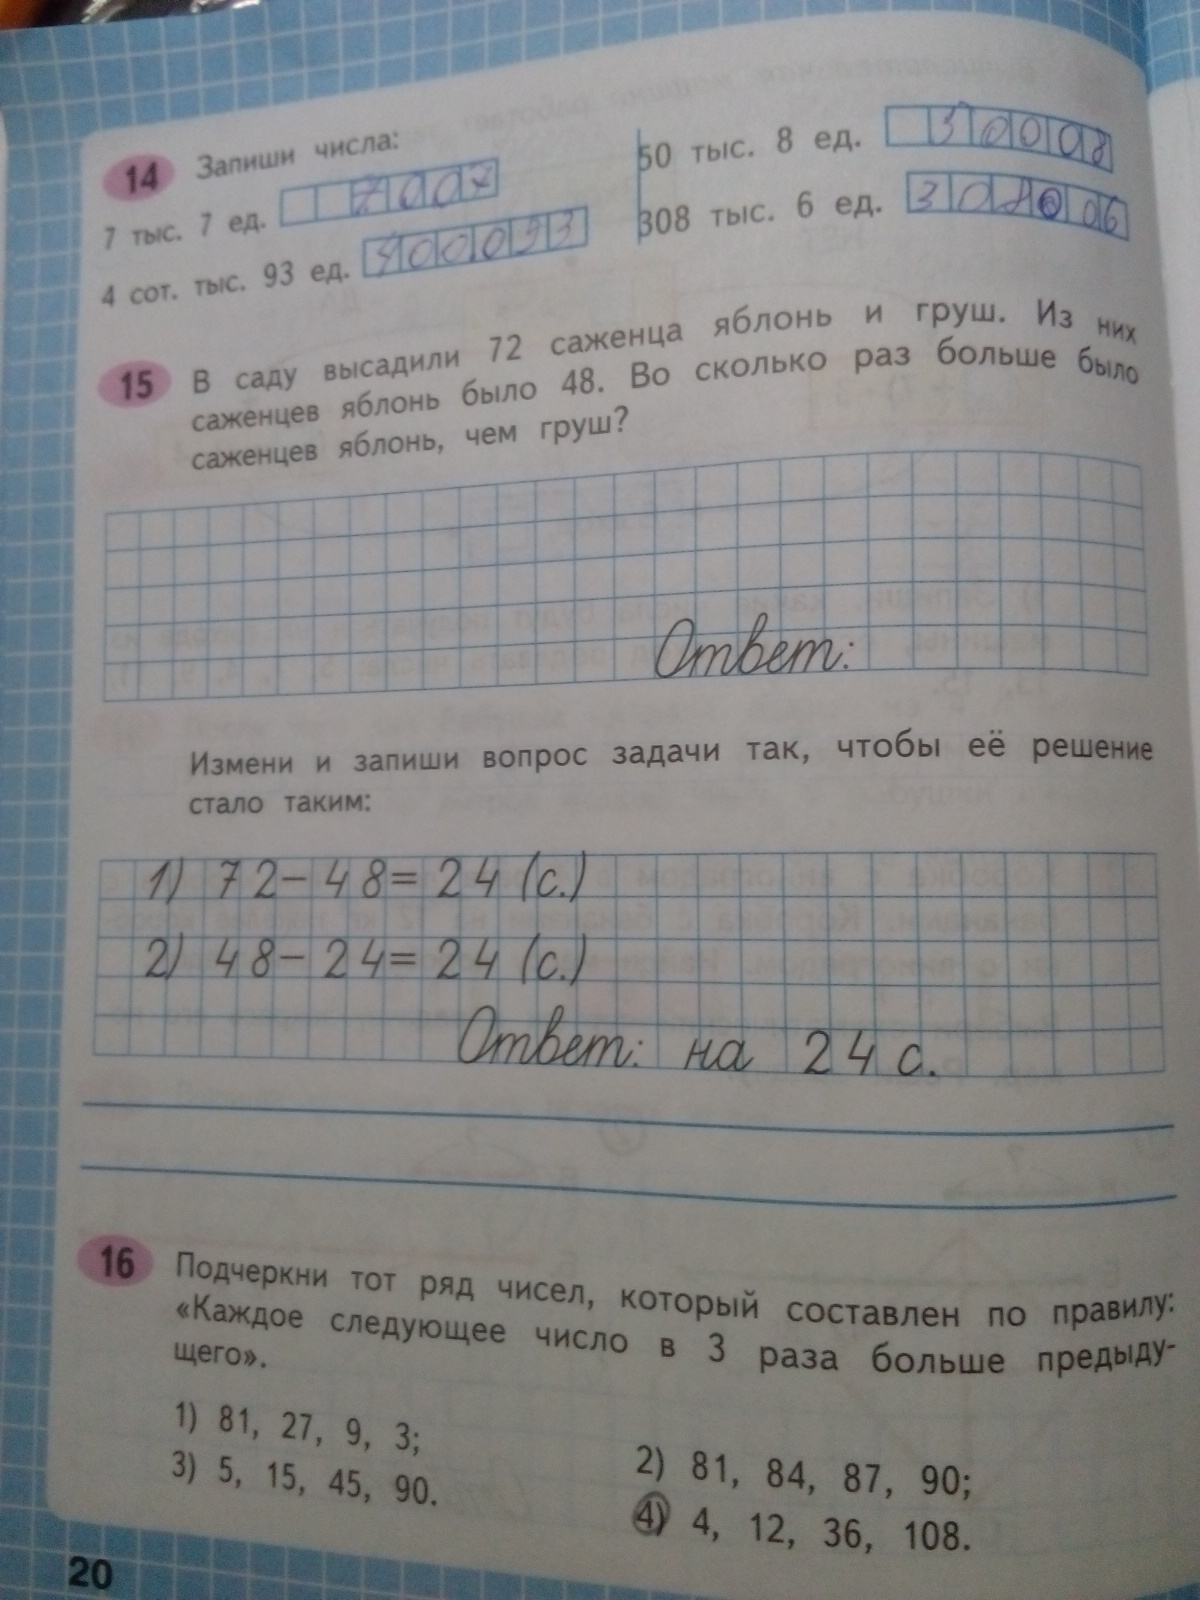 14 Запиши числа:
7 тыс. 7 ед. 7007
4 сот. тыс. 93 ед. 400093
50 тыс. 8 ед. 50008
308 тыс. 6 ед. 308006
15 В саду высадили 72 саженца яблонь и груш. Из них
саженцев яблонь было 48. Во сколько раз больше было
саженцев яблонь, чем груш?
Ответ:
Измени и запиши вопрос задачи так, чтобы её решение
стало таким:
1) 72 – 48 = 24 (с.)
2) 48 – 24 = 24 (с.)
Ответ: на 24 с.
16 Подчеркни тот ряд чисел, который составлен по правилу:
«Каждое следующее число в 3 раза больше предыду-
щего».
1) 81, 27, 9, 3;
2) 81, 84, 87, 90;
3) 5, 15, 45, 90.
4) 4, 12, 36, 108.
20